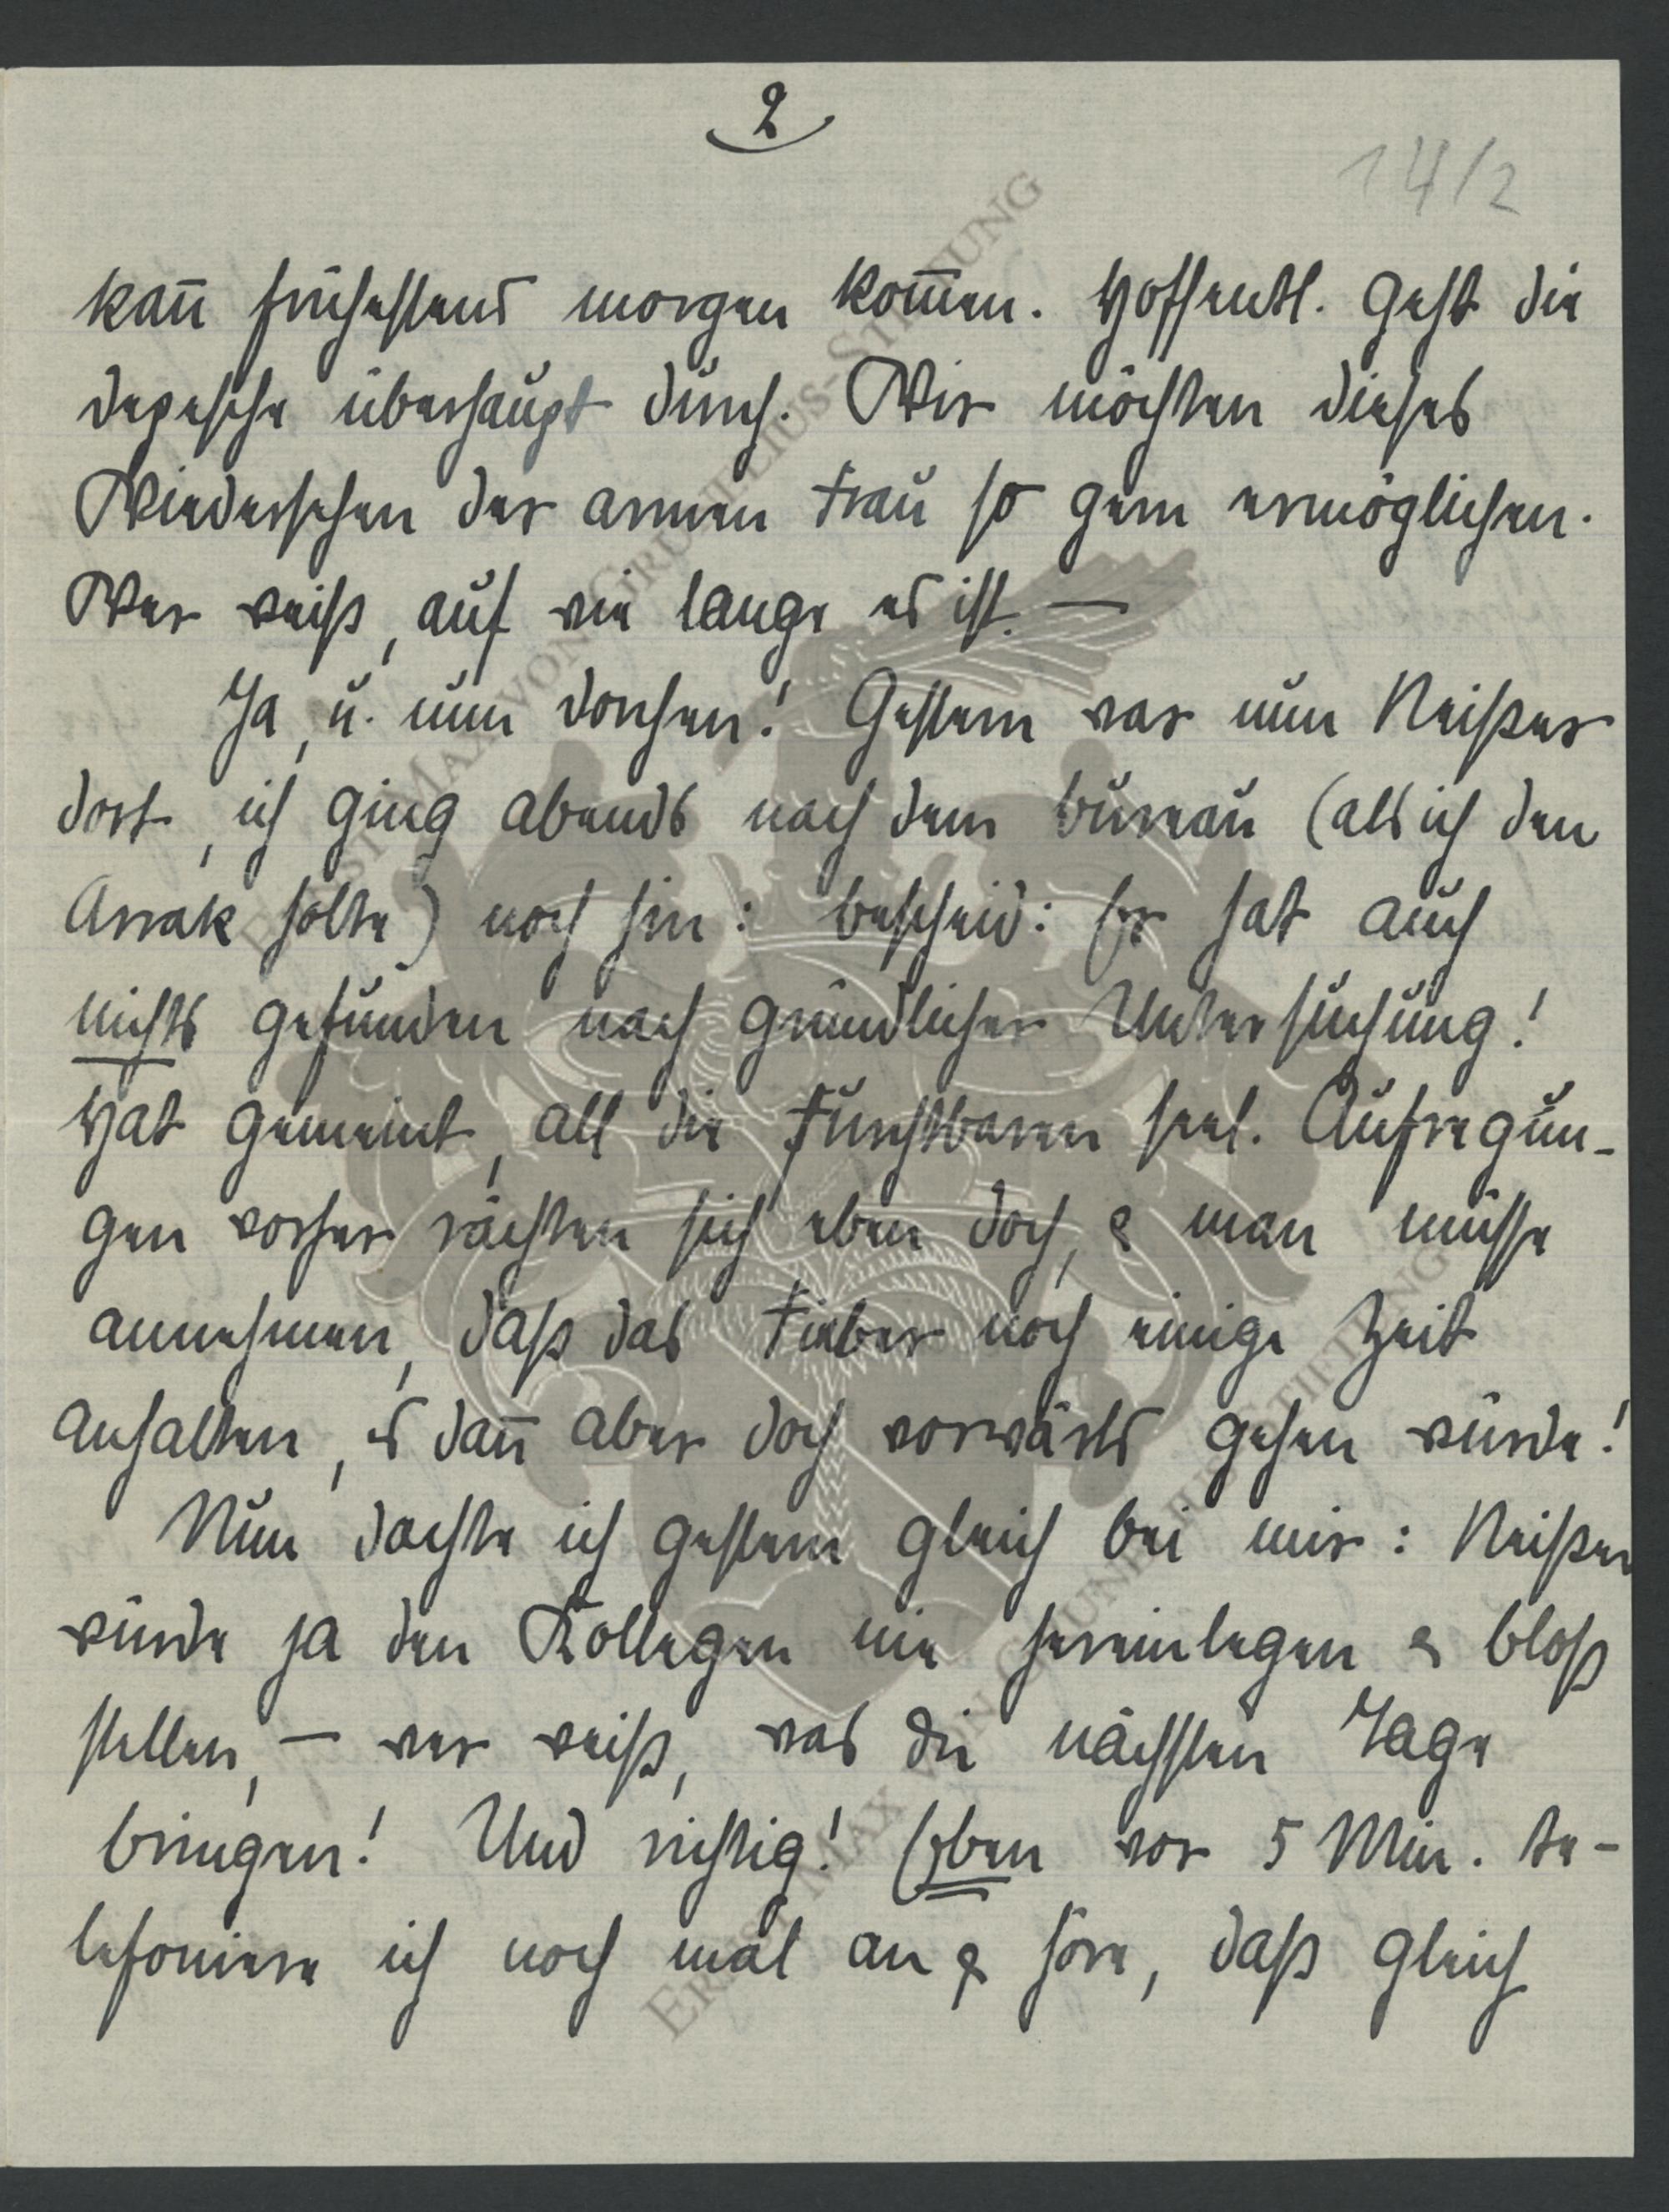 2
14/2
kan̄ frühestens morgen kom̄en. Hoffentl. geht die
Depesche überhaupt durch. Wir möchten dieses
Wiedersehen der armen Frau so gern ermöglichen.
Wer weiß, auf wie lange es ist. —
Ja, u. nun Dorchen! Gestern war nun Neißer
dort, ich ging abends nach dem Bureau (als ich den
Arrak holte) noch hin: Bescheid: Er hat auch
nichts gefunden nach gründlicher Untersuchung!
Hat gemeint, all die furchtbaren seel. Aufregun-
gen vorher rächten sich eben doch, & man müsse
annehmen, daß das Fieber noch einige Zeit
anhalten, es dan̄ aber doch vorwärts gehen würde!
Nun dachte ich gestern gleich bei mir: Neißer
würde ja den Kollegen nie hereinlegen & bloß
stellen, — wer weiß, was die nächsten Tage
bringen! Und richtig! Eben vor 5 Min. te-
lefoniere ich noch mal an & höre, daß gleich
ERNST MAX VON GRUNELIUS-STIFTUNG
ERNST MAX VON GRUNELIUS-STIFTUNG